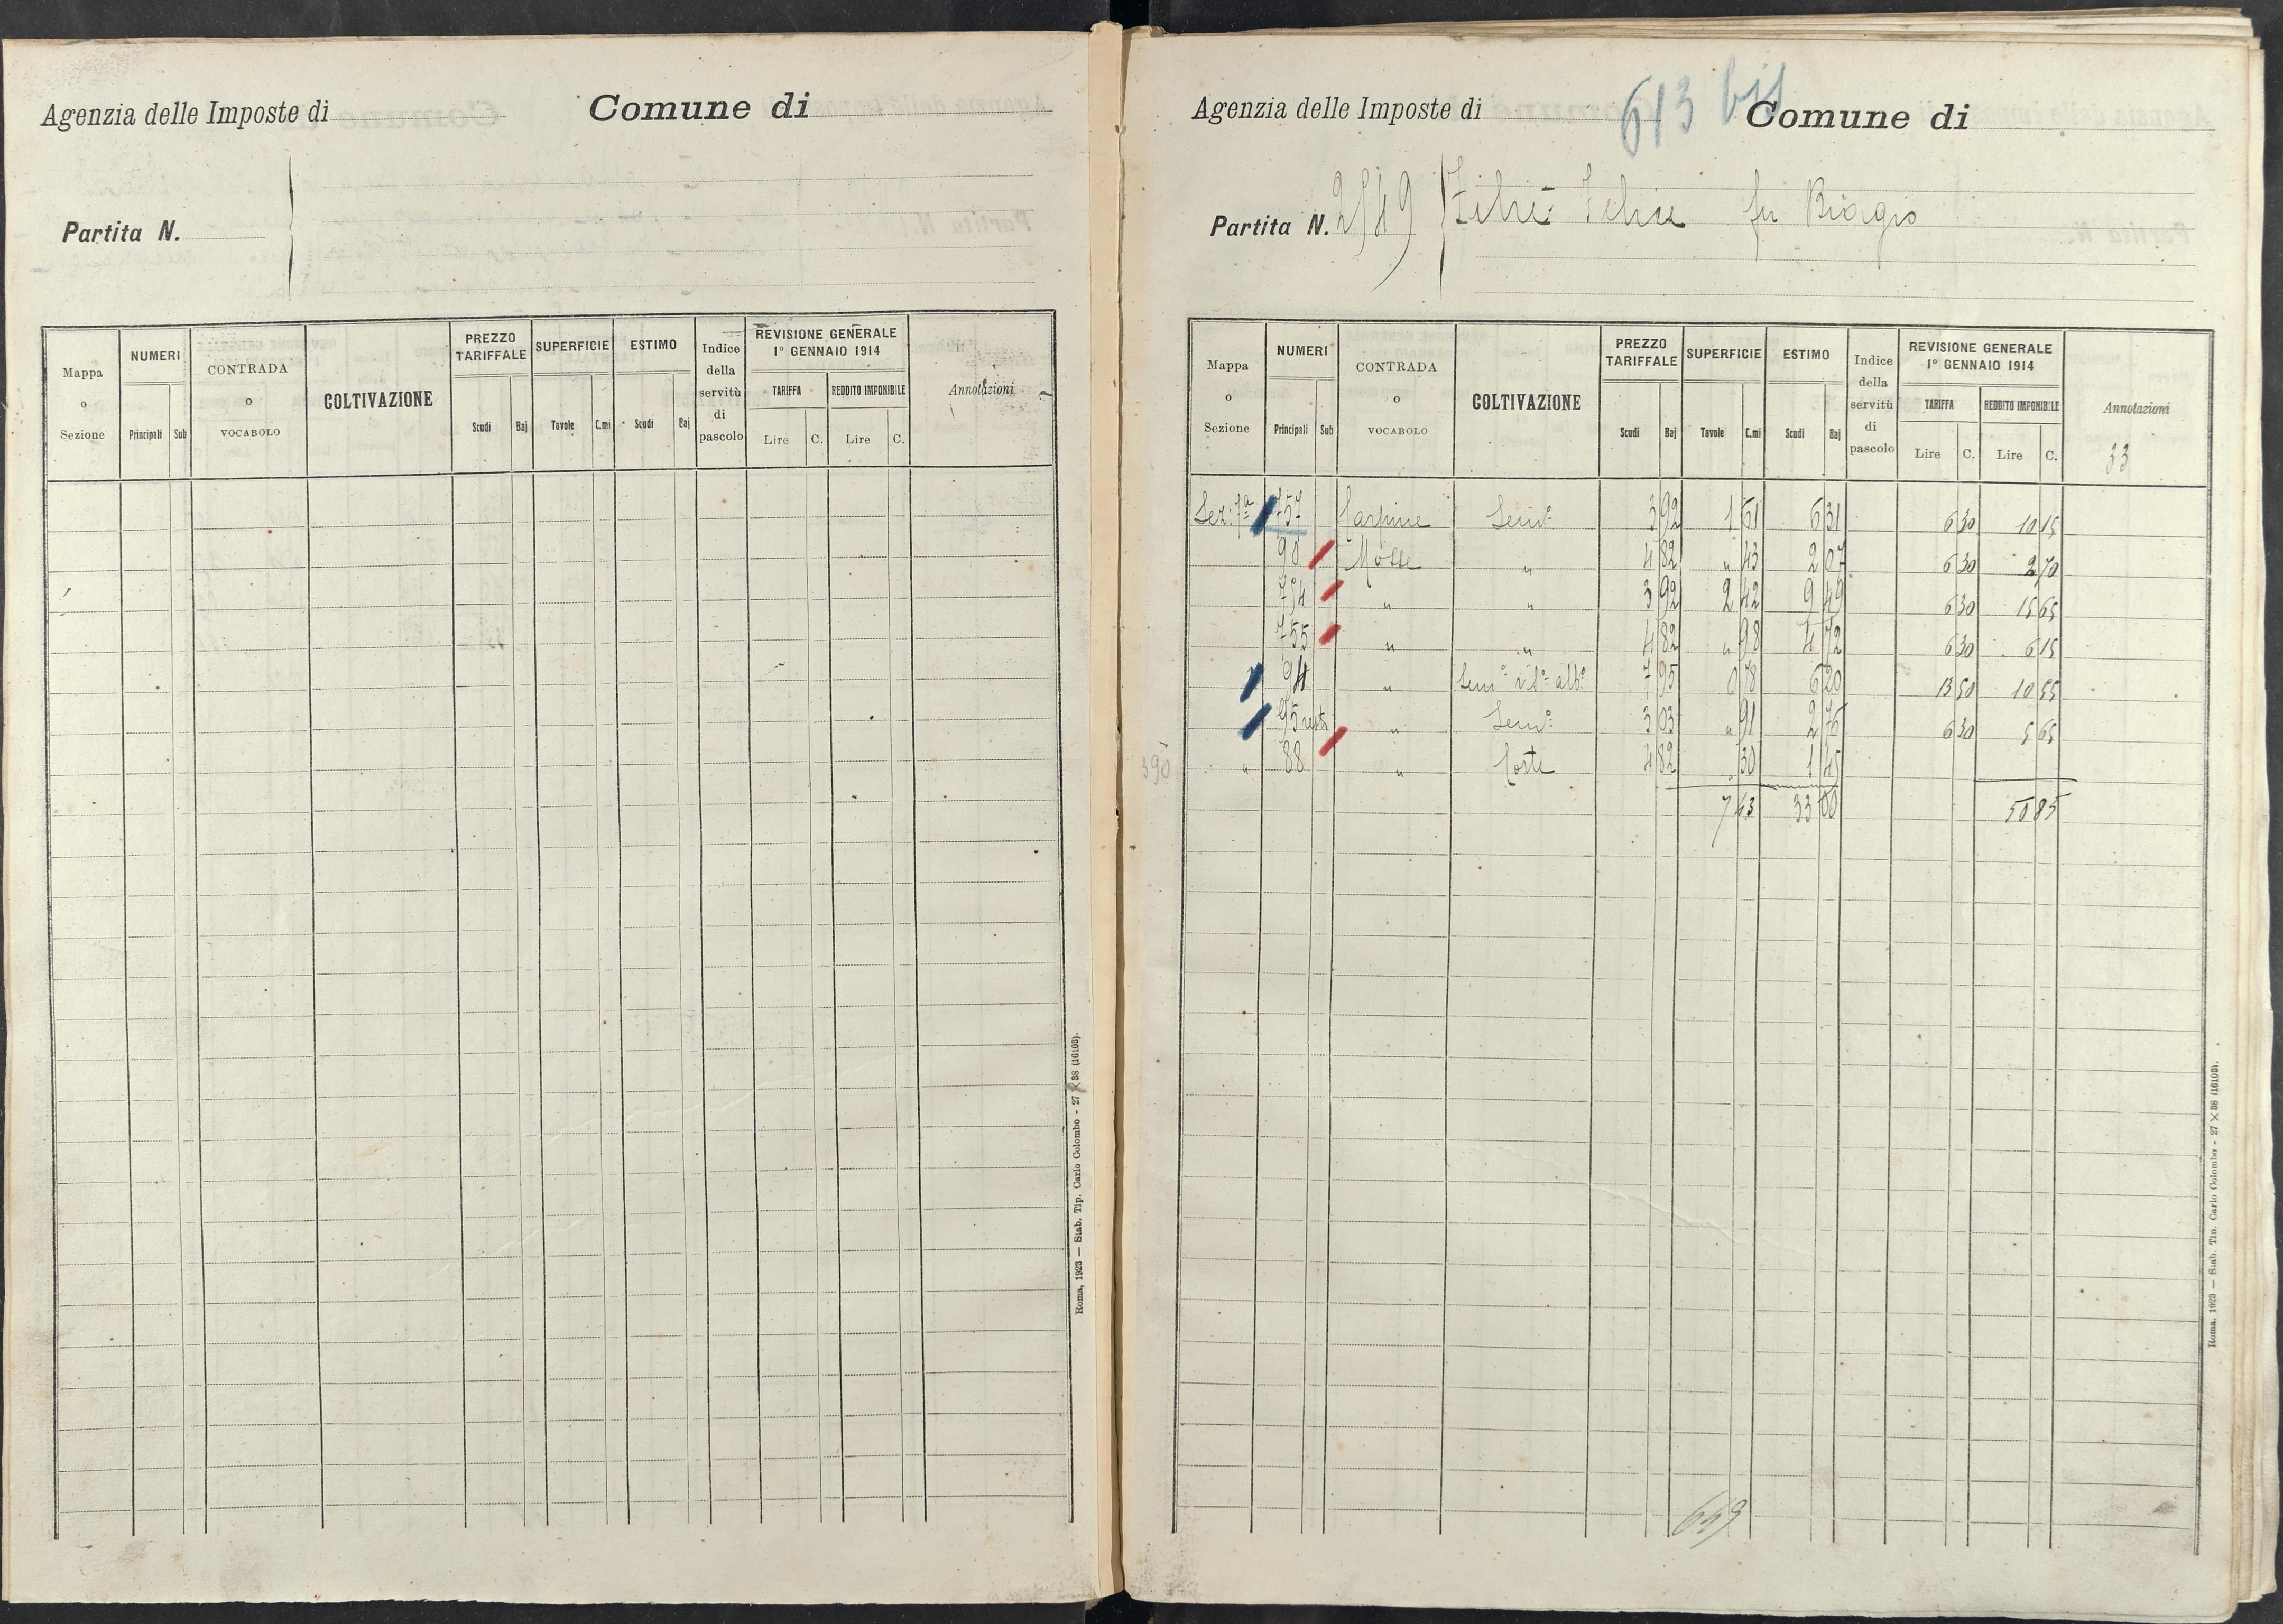 Agenzia delle Imposte di Comune di
Partita N.
Mappa o Sezione NUMERI Principali Sub CONTRADA O VOCABOLO COLTIVAZIONE PREZZO TARIFFALE Scudi Baj SUPERFICIE Tavole C.mi ESTIMO Scudi Baj Indice della servitù di pascolo REVISIONE GENERALE 1° GENNAIO 1914 TARIFFA Lire C. REDDITO IMPONIBILE Lire C. Annotazioni
Roma, 1923 — Stab. Tip. Carlo Colombo - 27 × 38 (16103).
613 bis
Agenzia delle Imposte di Comune di
Partita N. 2549 Felice fu Biagio
Mappa o Sezione NUMERI Principali Sub CONTRADA O VOCABOLO COLTIVAZIONE PREZZO TARIFFALE Scudi Baj SUPERFICIE Tavole C.mi ESTIMO Scudi Baj Indice della servitù di pascolo REVISIONE GENERALE 1° GENNAIO 1914 TARIFFA Lire C. REDDITO IMPONIBILE Lire C. Annotazioni
33
Sez: 7ª 757 Carpine Semº 3 92 1 61 6 31 6 30 10 15
90 Molle " 4 82 " 43 2 07 6 30 2 70
754 " " 3 92 2 42 9 49 6 30 15 65
755 " " 4 82 " 98 4 72 6 30 6 15
94 " Semº vitº albº 7 95 0 78 6 20 13 50 10 55
95 rest " Semº 3 03 " 91 2 76 6 30 5 65
390 " 88 " Coste 4 82 " 30 1 45
7 43 33 00 50 85
649
Roma, 1923 — Stab. Tip. Carlo Colombo - 27 × 38 (16103).